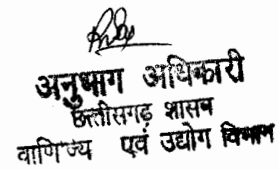 अनुभाग अधिकारी
छत्तीसगढ़ शासन
वाणिज्य एवं उद्योग विभाग